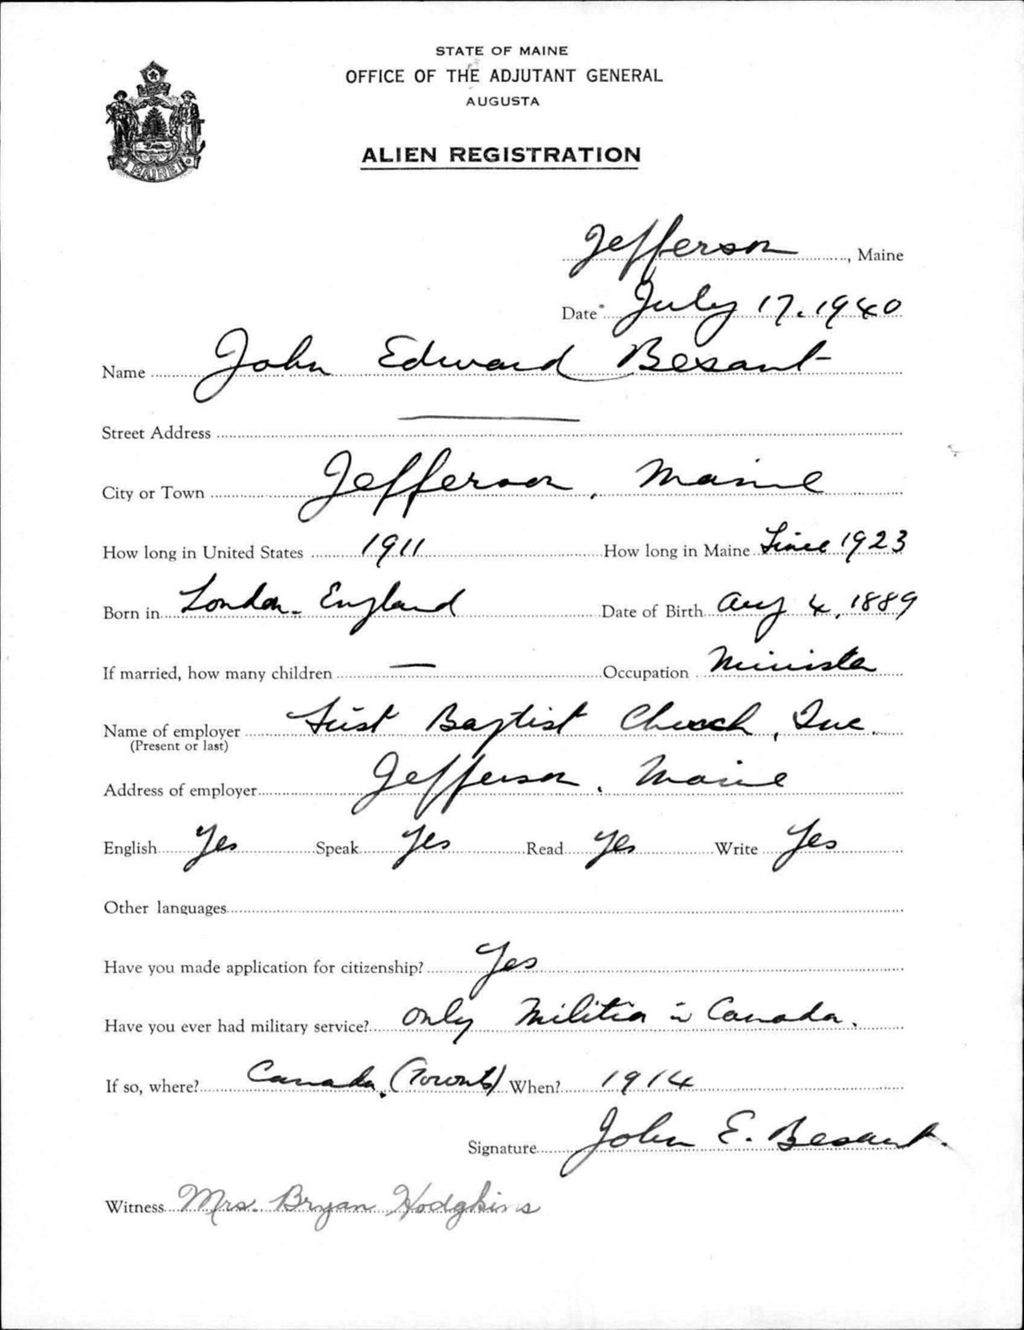 STATE OF MAINE
OFFICE OF THE ADJUTANT GENERAL
AUGUSTA
ALIEN REGISTRATION
MAINE
Jefferson, Maine
Date July 17, 1940
Name John Edward Besant
Street Address —
City or Town Jefferson, Maine
How long in United States 1911 How long in Maine Since 1923
Born in London, England Date of Birth Aug 4, 1889
If married, how many children — Occupation Minister
Name of employer First Baptist Church, Inc.
(Present or last)
Address of employer Jefferson, Maine
English Yes Speak Yes Read Yes Write Yes
Other languages
Have you made application for citizenship? Yes
Have you ever had military service? only Militia in Canada.
If so, where? Canada, (Toronto) When? 1914
Signature John E. Besant.
Witness Mrs. Bryan Hodgkins